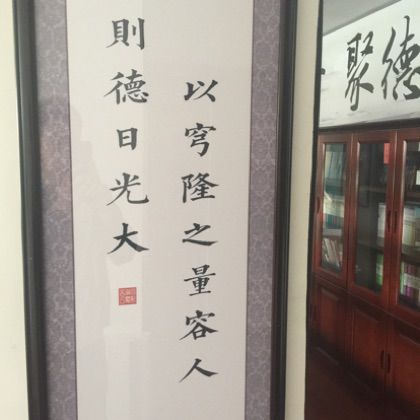 以穹隆之量容人
則德日光大
德聚